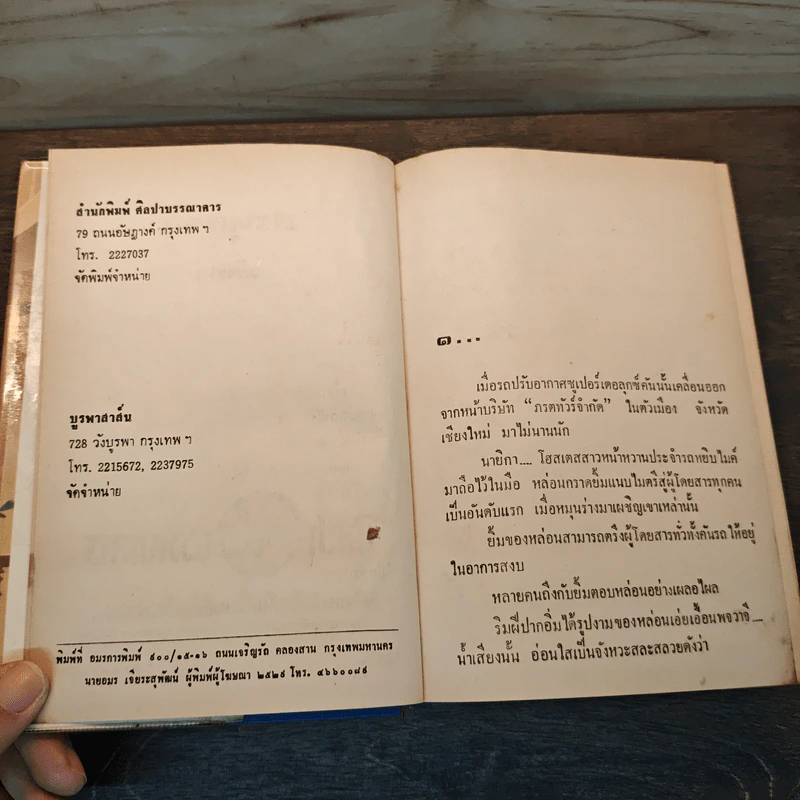 สำนักพิมพ์ ศิลปาบรรณาคาร
79 ถนนอัษฎางค์ กรุงเทพ ฯ
โทร. 2227037
จัดพิมพ์จำหน่าย
บูรพาสาส์น
728 วังบูรพา กรุงเทพ ฯ
โทร. 2215672, 2237975
จัดจำหน่าย
พิมพ์ที่ อมรการพิมพ์ ๙๐๐/๑๕-๑๖ ถนนเจริญรัถ คลองสาน กรุงเทพมหานคร
นายอมร เจียระสุพัฒน์ ผู้พิมพ์ผู้โฆษณา ๒๕๒๙ โทร. ๔๖๖๐๐๘๙
๑...
เมื่อรถปรับอากาศซูเปอร์เดอลุกซ์คันนั้นเคลื่อนออก
จากหน้าบริษัท “ภรตทัวร์จำกัด” ในตัวเมือง จังหวัด
เชียงใหม่ มาไม่นานนัก
นายิกา.... โฮสเตสสาวหน้าหวานประจำรถหยิบไมค์
มาถือไว้ในมือ หล่อนกราดยิ้มแนบไมตรีสู่ผู้โดยสารทุกคน
เป็นอันดับแรก เมื่อหมุนร่างมาเผชิญเขาเหล่านั้น
ยิ้มของหล่อนสามารถตรึงผู้โดยสารทั่วทั้งคันรถให้อยู่
ในอาการสงบ
หลายคนถึงกับยิ้มตอบหล่อนอย่างเผลอไผล
ริมฝีปากอิ่มได้รูปงามของหล่อนเอ่ยเอื้อนพจวาจี....
น้ำเสียงนั้น อ่อนใสเป็นจังหวะสละสลวยดังว่า